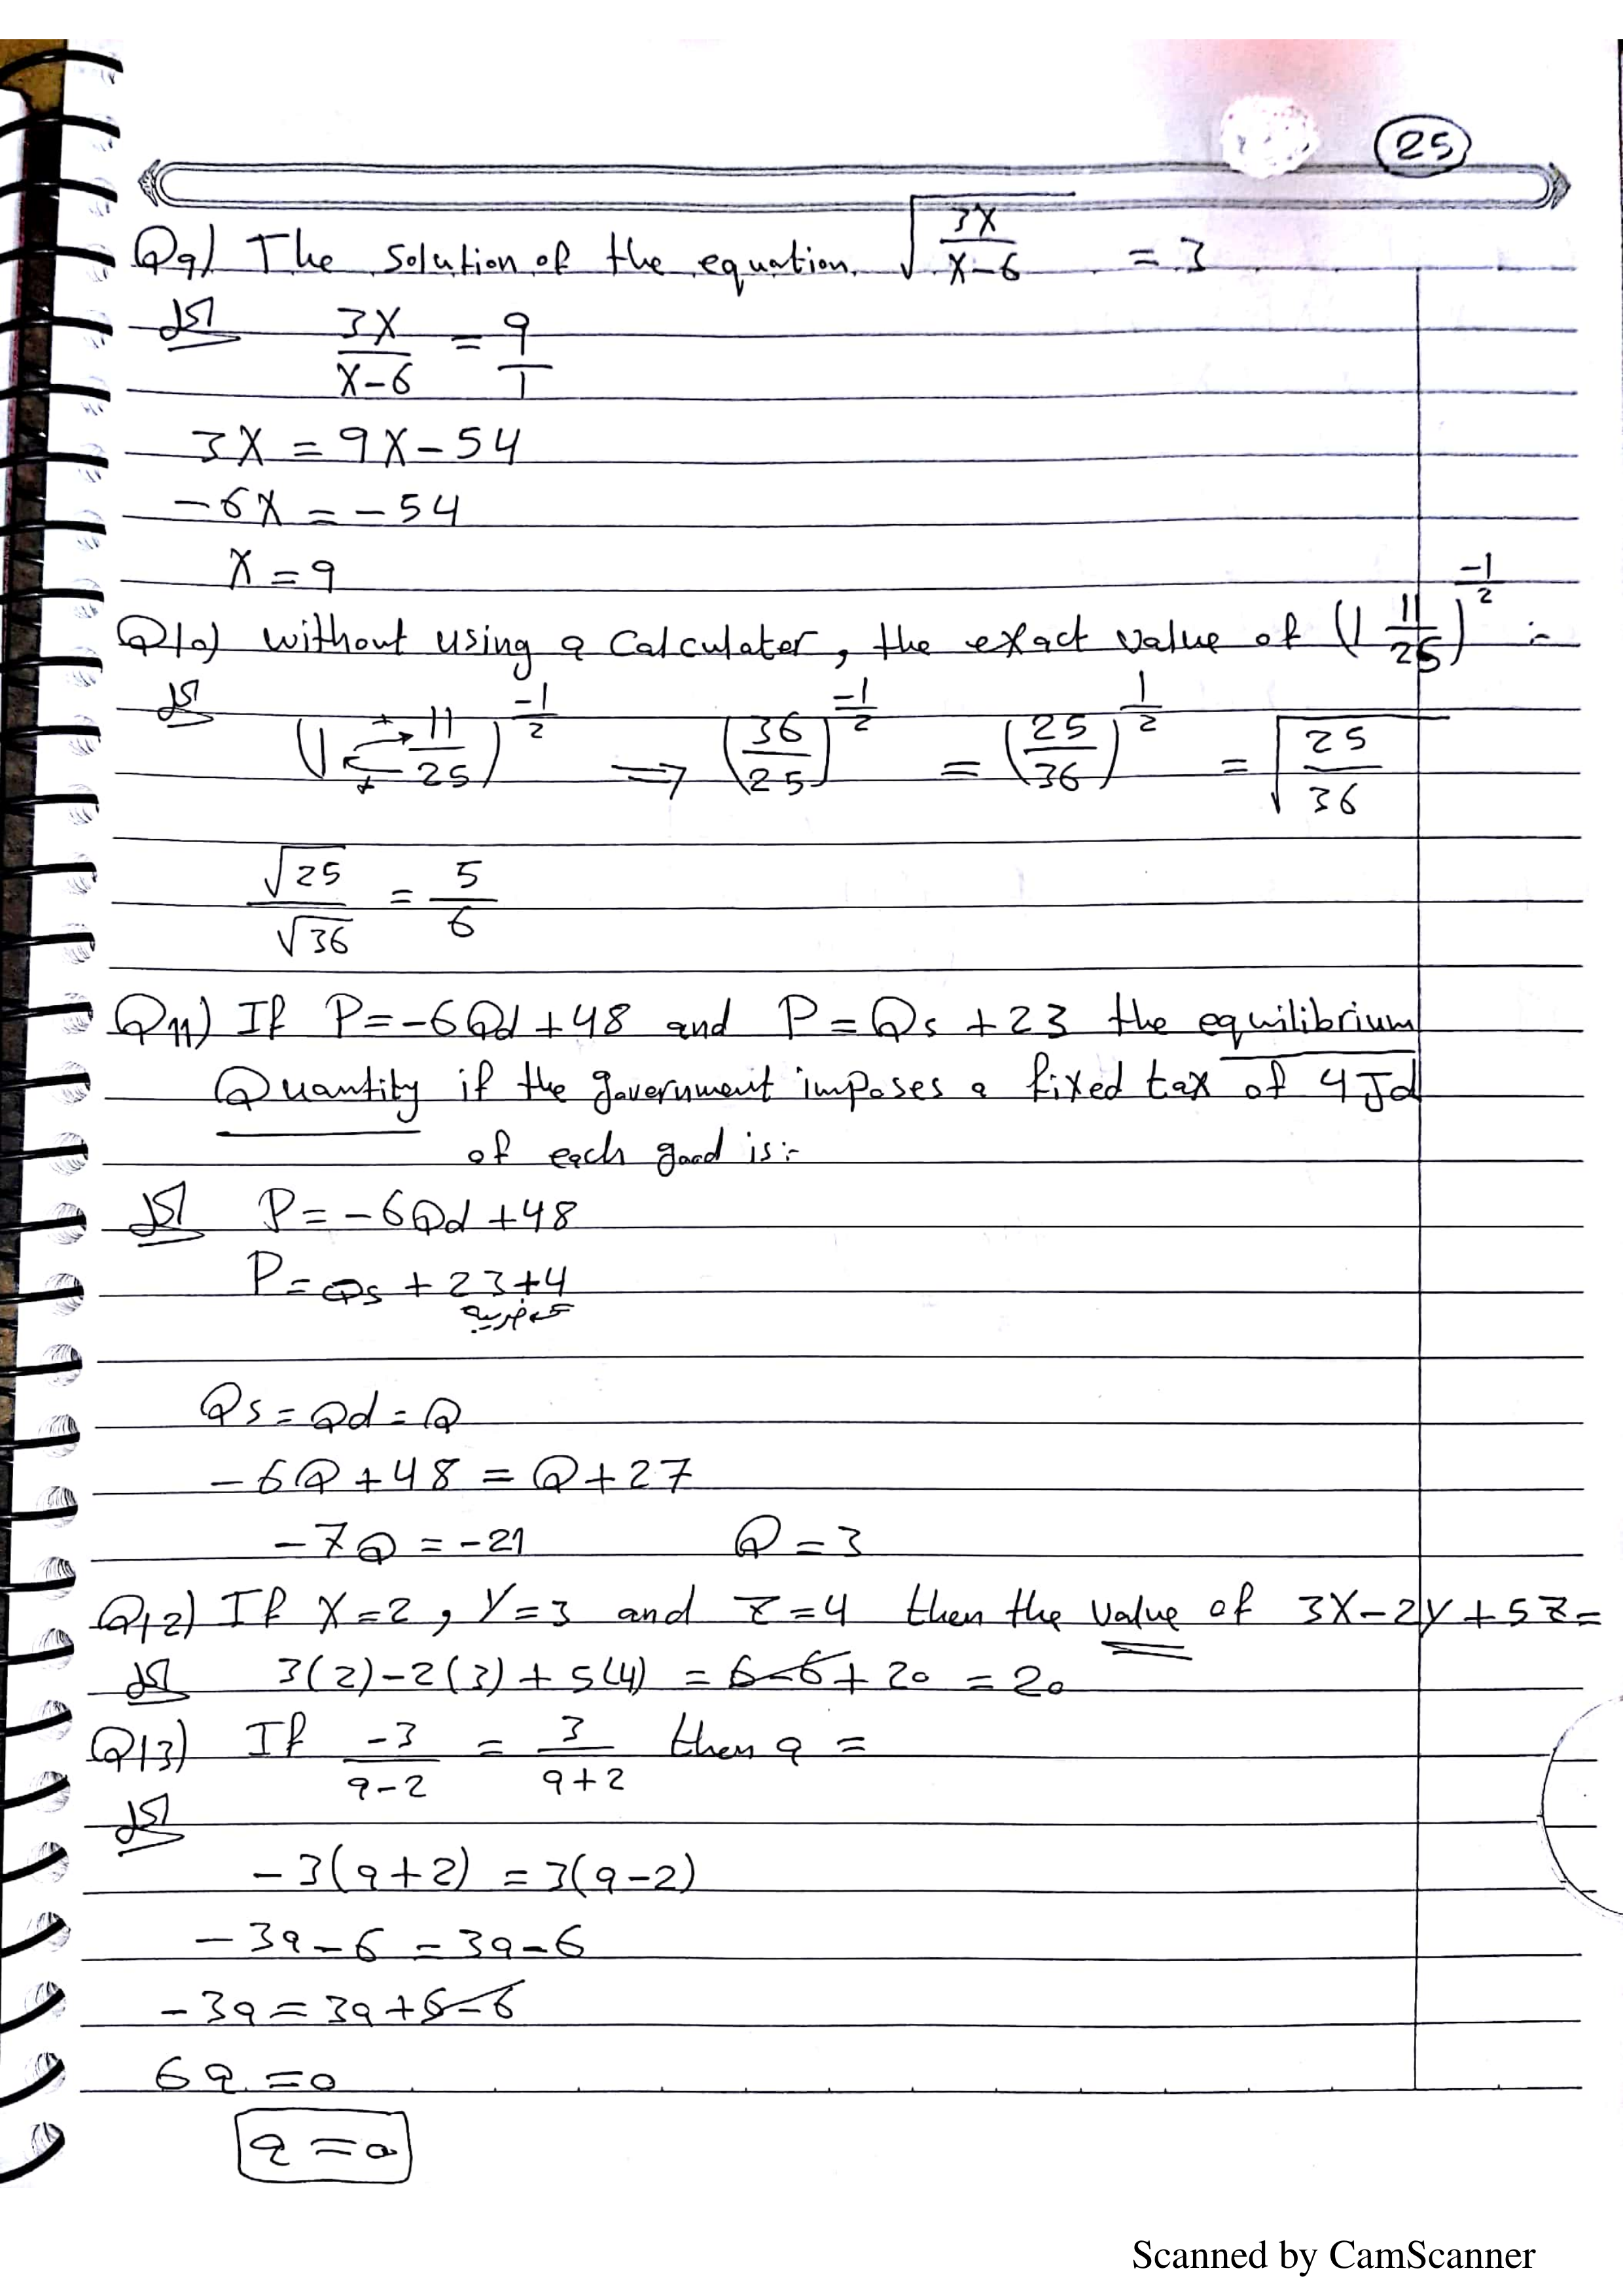 25
Q9) The solution of the equation √(3X/(X-6)) = 3
الحل 3X/(X-6) = 9/1
3X = 9X - 54
-6X = -54
X = 9
Q10) without using a calculater, the exact value of (1 11/25)^(-1/2) :-
الحل (1 11/25)^(-1/2) ⇒ (36/25)^(-1/2) = (25/36)^(1/2) = √(25/36)
√25/√36 = 5/6
Q11) If P=-6Qd+48 and P=Qs+23 the equilibrium
Quantity if the government imposes a fixed tax of 4Jd
of each good is:-
الحل P=-6Qd+48
P=Qs+23+4
ضريبه
Qs=Qd=Q
-6Q+48=Q+27
-7Q=-21 Q=3
Q12) If X=2, Y=3 and Z=4 then the value of 3X-2Y+5Z=
الحل 3(2)-2(3)+5(4) = 6-6+20 = 20
Q13) If -3/(a-2) = 3/(a+2) then a =
الحل
-3(a+2) = 3(a-2)
-3a-6 = 3a-6
-3a = 3a+6-6
6a=0
a=0
Scanned by CamScanner